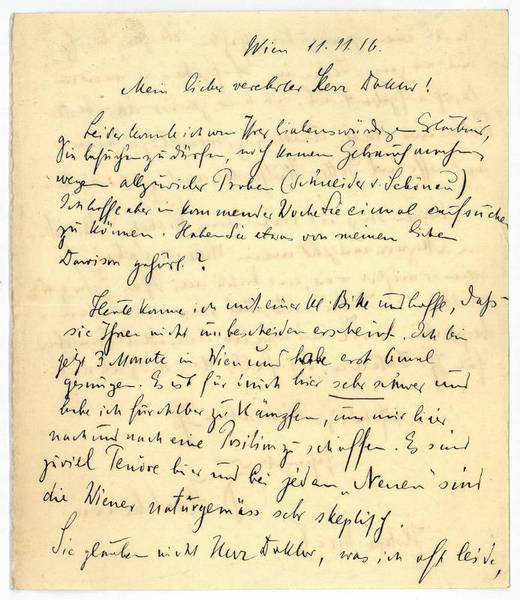 Wien 11.11.16.
Mein lieber verehrter Herr Doktor!
Leider konnte ich von Ihrer liebenswürdigen Erlaubnis,
Sie besuchen zu dürfen, noch keinen Gebrauch machen
wegen allzuvieler Proben (Schneider v. Schönau)
Ich hoffe aber in kommender Woche Sie einmal aufsuchen
zu können. Haben Sie etwas von meinem lieben
Dawison gehört?
Heute komme ich mit einer kl. Bitte und hoffe, dass
sie Ihnen nicht unbescheiden erscheint. Ich bin
jetzt 3 Monate in Wien und habe erst 6mal
gesungen. Es ist für mich hier sehr schwer und
habe ich furchtbar zu kämpfen, um mir hier
nach und nach eine Position zu schaffen. Es sind
zuviel Tenöre hier und bei jedem „Neuen" sind
die Wiener naturgemäss sehr skeptisch.
Sie glauben nicht Herr Doktor, was ich oft leide,